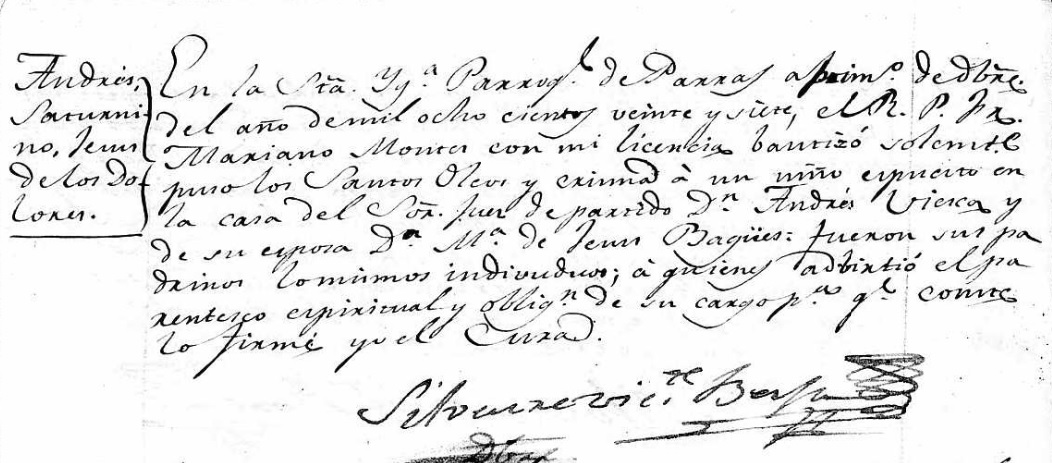 Andrés,
Saturni-
no, Jesus
de los Do-
lores.
En la Sta. Ygª Parroql de Parras a prim.º de dbre.
del año de mil ocho cientos veinte y siete, el R. P. Fr.
Mariano Montes con mi licencia bautizó solemte
puso los Santos Oleos y crisma à un niño espuesto en
la casa del Sôr. Juez de partido Dn Andrés Viesca y
de su esposa Dª Mª de Jesus Bagües: fueron sus pa
drinos lo mismos individuos; à quienes advirtió el pa
rentesco espiritual y obligⁿ de su cargo pª qe conste
lo firmé yo el Cura.
Silvestre Victe